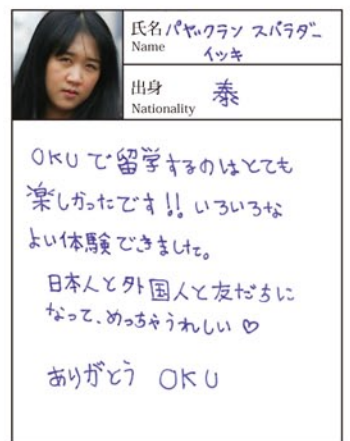 氏名 パヤックラン スパラダー
Name イッキ
出身 泰
Nationality
OKUで留学するのはとても
楽しかったです!! いろいろな
よい体験できました。
日本人と外国人と友だちに
なって、めっちゃうれしい♡
ありがとう OKU